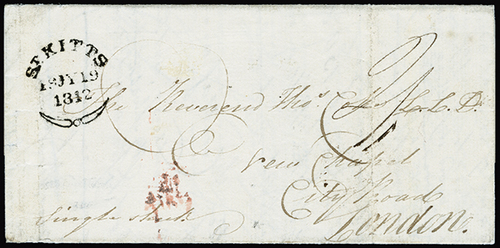 ST KITTS
JY 19
1842
The Reverend Thos. L.L.D.
New Chapel
City Road
London.
Single sheet